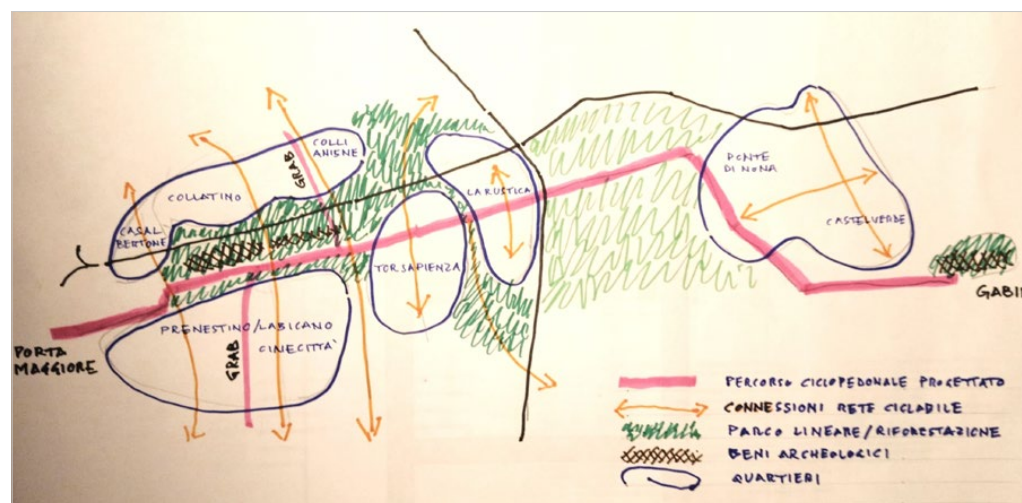 COLLI
ANIENE
GRAB
COLLATINO
CASAL
BERTONE
LA RUSTICA
PONTE
DI NONA
CASTELVERDE
TOR SAPIENZA
GABII
PRENESTINO/LABICANO
CINECITTÀ
GRAB
PORTA
MAGGIORE
PERCORSO CICLOPEDONALE PROGETTATO
CONNESSIONI RETE CICLABILE
PARCO LINEARE/RIFORESTAZIONE
BENI ARCHEOLOGICI
QUARTIERI